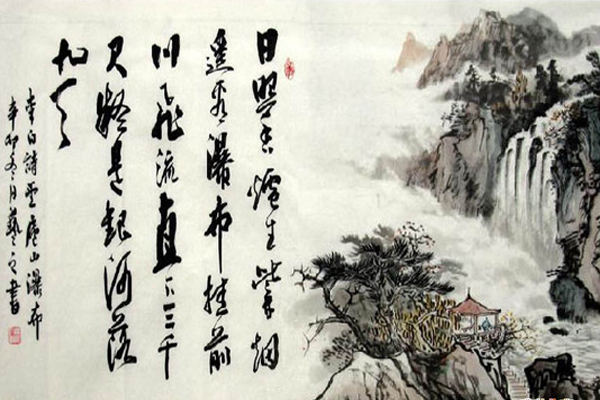 日照香爐生紫烟
遥看瀑布挂前
川飛流直下三千
尺疑是銀河落
九天
李白詩望廬山瀑布
辛卯冬月藝之書